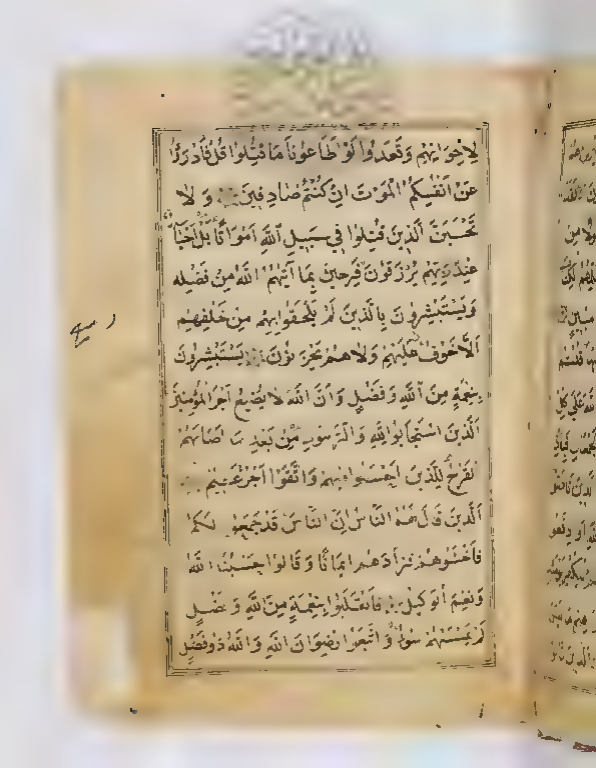 لِاِخْوَانِهِمْ وَقَعَدُوا لَوْ اَطَاعُونَا مَا قُتِلُوا قُلْ فَادْرَؤُا
عَنْ اَنْفُسِكُمُ الْمَوْتَ اِنْ كُنْتُمْ صَادِقِينَ وَلَا
تَحْسَبَنَّ الَّذِينَ قُتِلُوا فِي سَبِيلِ اللّٰهِ اَمْوَاتًا بَلْ اَحْيَآءٌ
عِنْدَ رَبِّهِمْ يُرْزَقُونَ فَرِحِينَ بِمَا آتٰيهُمُ اللّٰهُ مِنْ فَضْلِه
وَيَسْتَبْشِرُونَ بِالَّذِينَ لَمْ يَلْحَقُوا بِهِمْ مِنْ خَلْفِهِمْ
اَلَّا خَوْفٌ عَلَيْهِمْ وَلَا هُمْ يَحْزَنُونَ يَسْتَبْشِرُونَ
بِنِعْمَةٍ مِنَ اللّٰهِ وَفَضْلٍ وَاَنَّ اللّٰهَ لَا يُضِيعُ اَجْرَ الْمُؤْمِنِينَ
اَلَّذِينَ اسْتَجَابُوا لِلّٰهِ وَالرَّسُولِ مِنْ بَعْدِ مَا اَصَابَهُمُ
الْقَرْحُ لِلَّذِينَ اَحْسَنُوا مِنْهُمْ وَاتَّقَوْا اَجْرٌ عَظِيمٌ
اَلَّذِينَ قَالَ لَهُمُ النَّاسُ اِنَّ النَّاسَ قَدْ جَمَعُوا لَكُمْ
فَاخْشَوْهُمْ فَزَادَهُمْ اِيمَانًا وَقَالُوا حَسْبُنَا اللّٰهُ
وَنِعْمَ الْوَكِيلُ فَانْقَلَبُوا بِنِعْمَةٍ مِنَ اللّٰهِ وَفَضْلٍ
لَمْ يَمْسَسْهُمْ سُوءٌ وَاتَّبَعُوا رِضْوَانَ اللّٰهِ وَاللّٰهُ ذُو فَضْلٍ